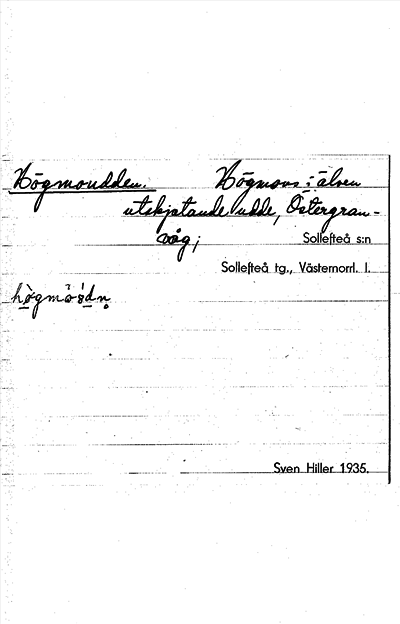 Högmoudden. Högmons i älven
utskjutande udde, Östergran-
våg;
Sollefteå s:n
Sollefteå tg., Västernorrl. l.
Sven Hiller 1935.